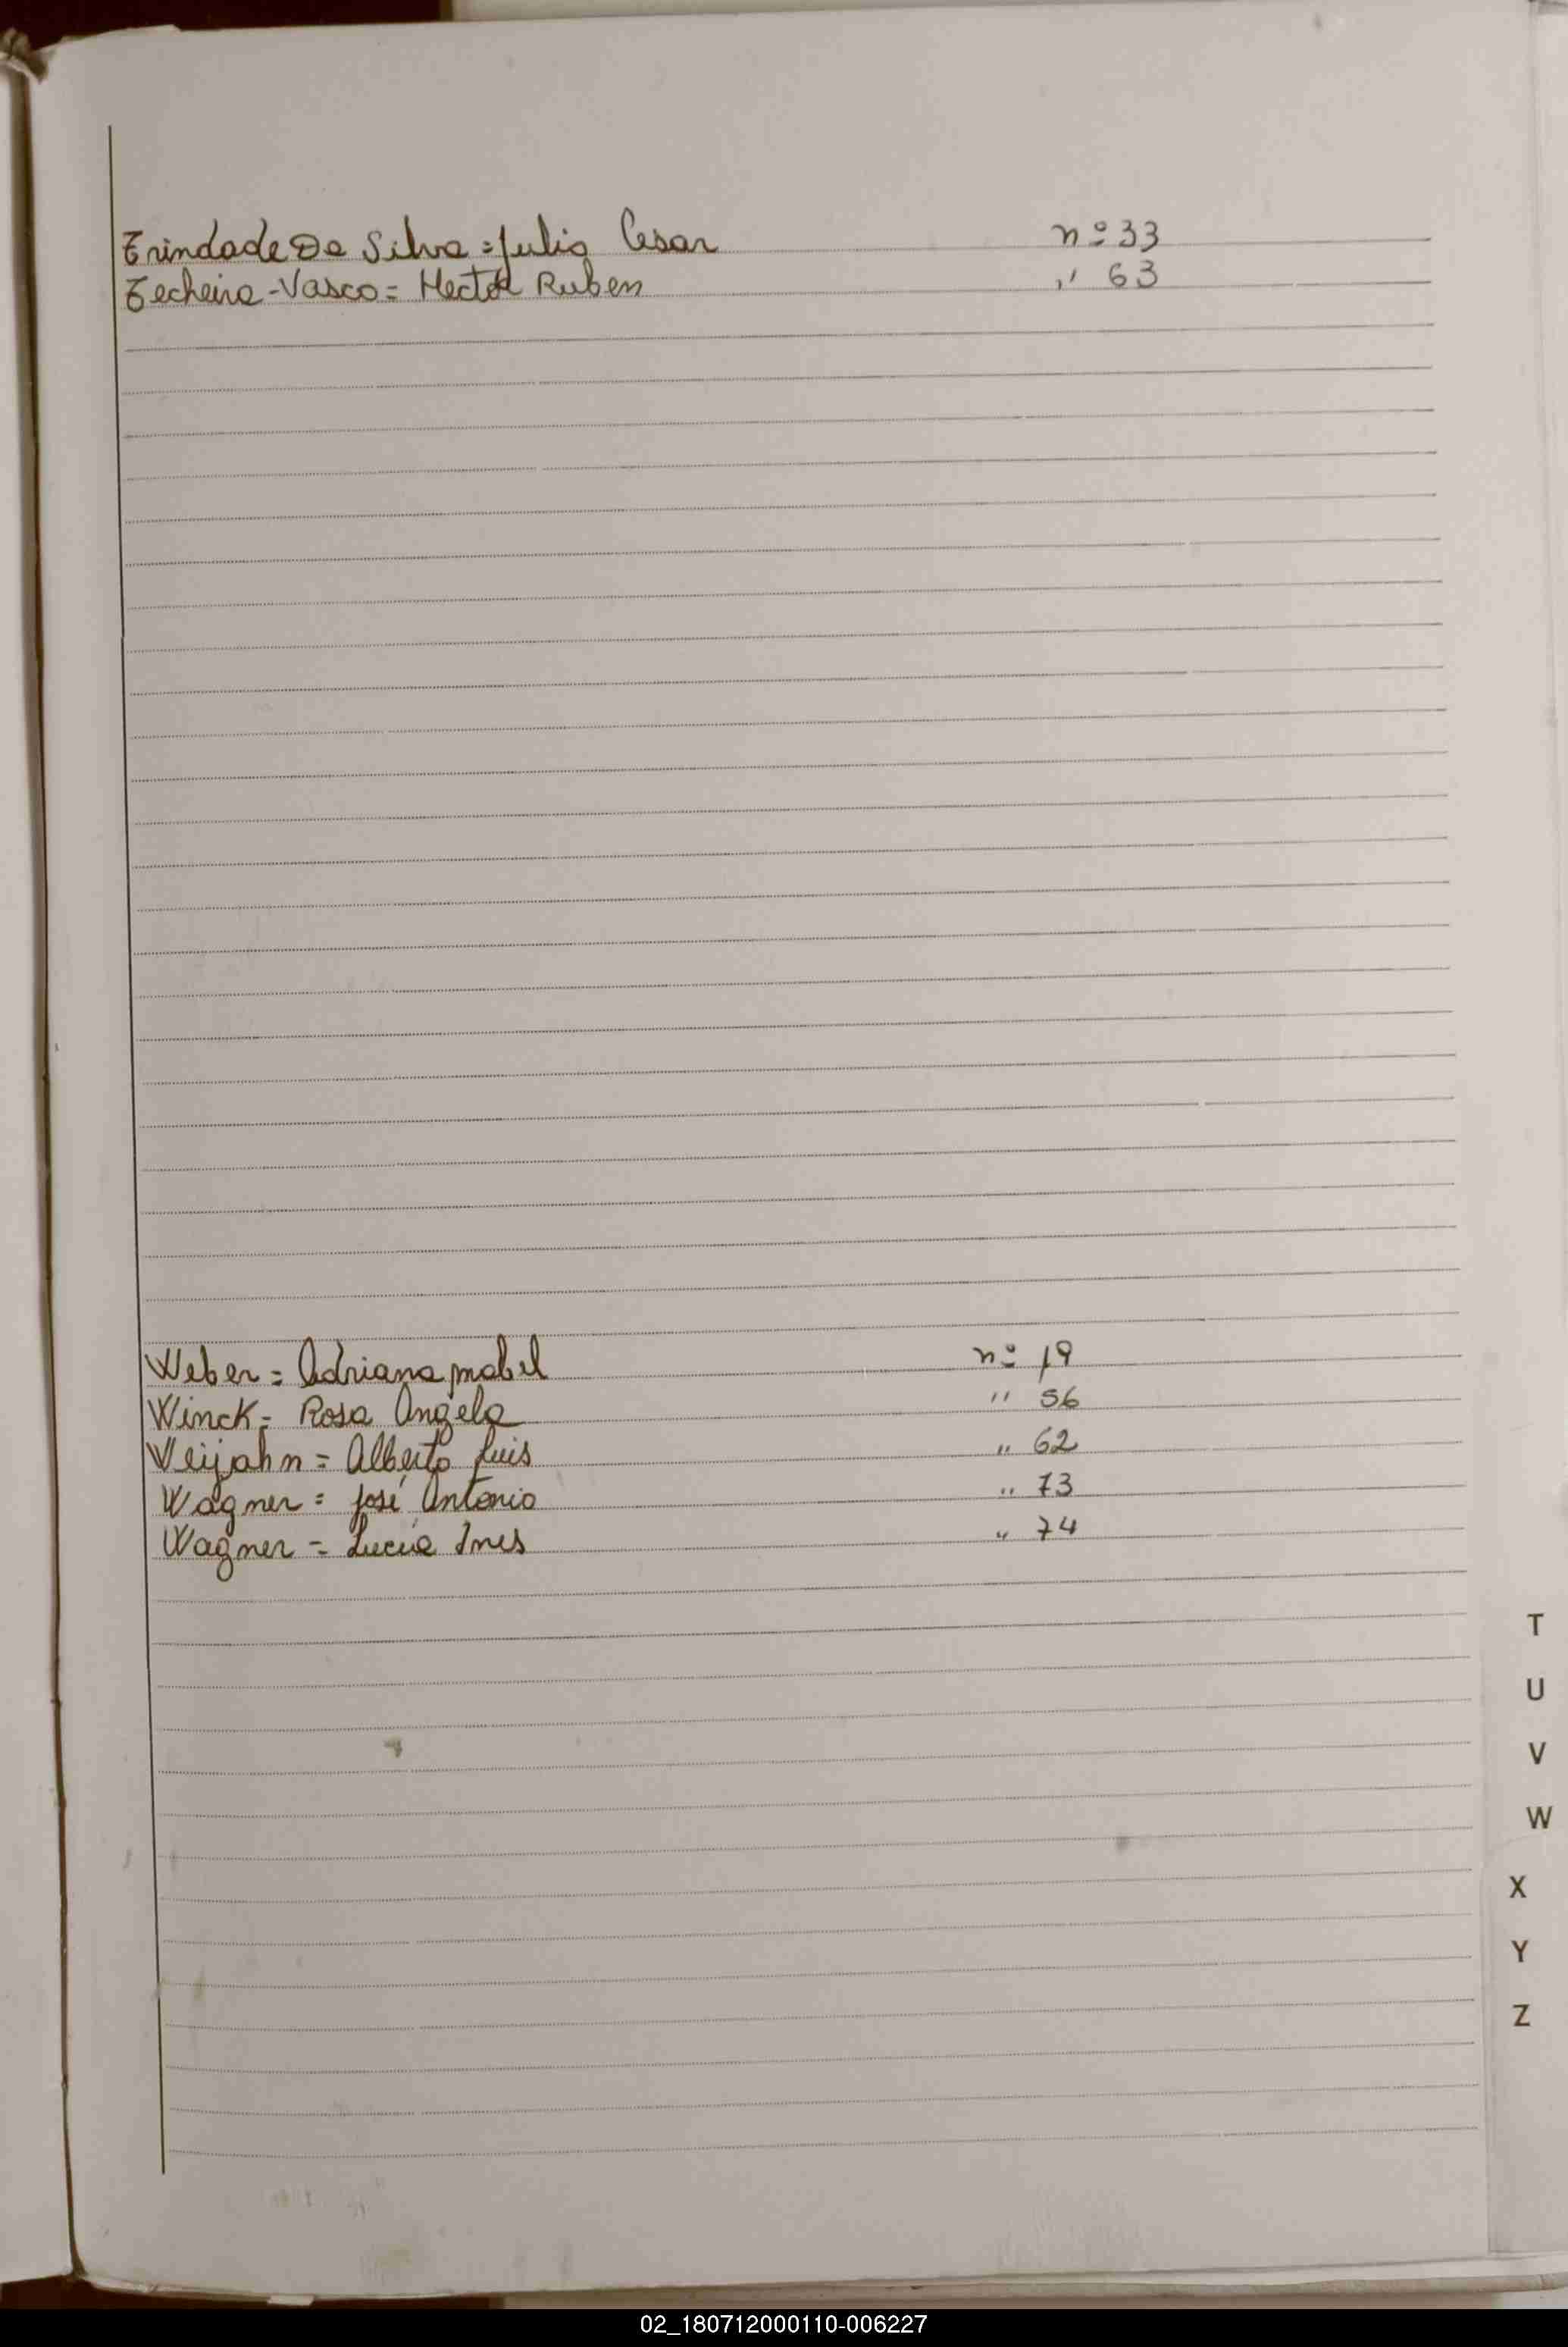 Trindade Da Silva = Julio Cesar nº 33
Techeira - Vasco = Hector Ruben " 63
Weber = Adriana mabel nº 19
Winck = Rosa Angela " 56
Weijahn = Alberto Luis " 62
Wagner = José Antonio " 73
Wagner = Lucía Ines " 74
T
U
V
W
X
Y
Z
02_180712000110-006227